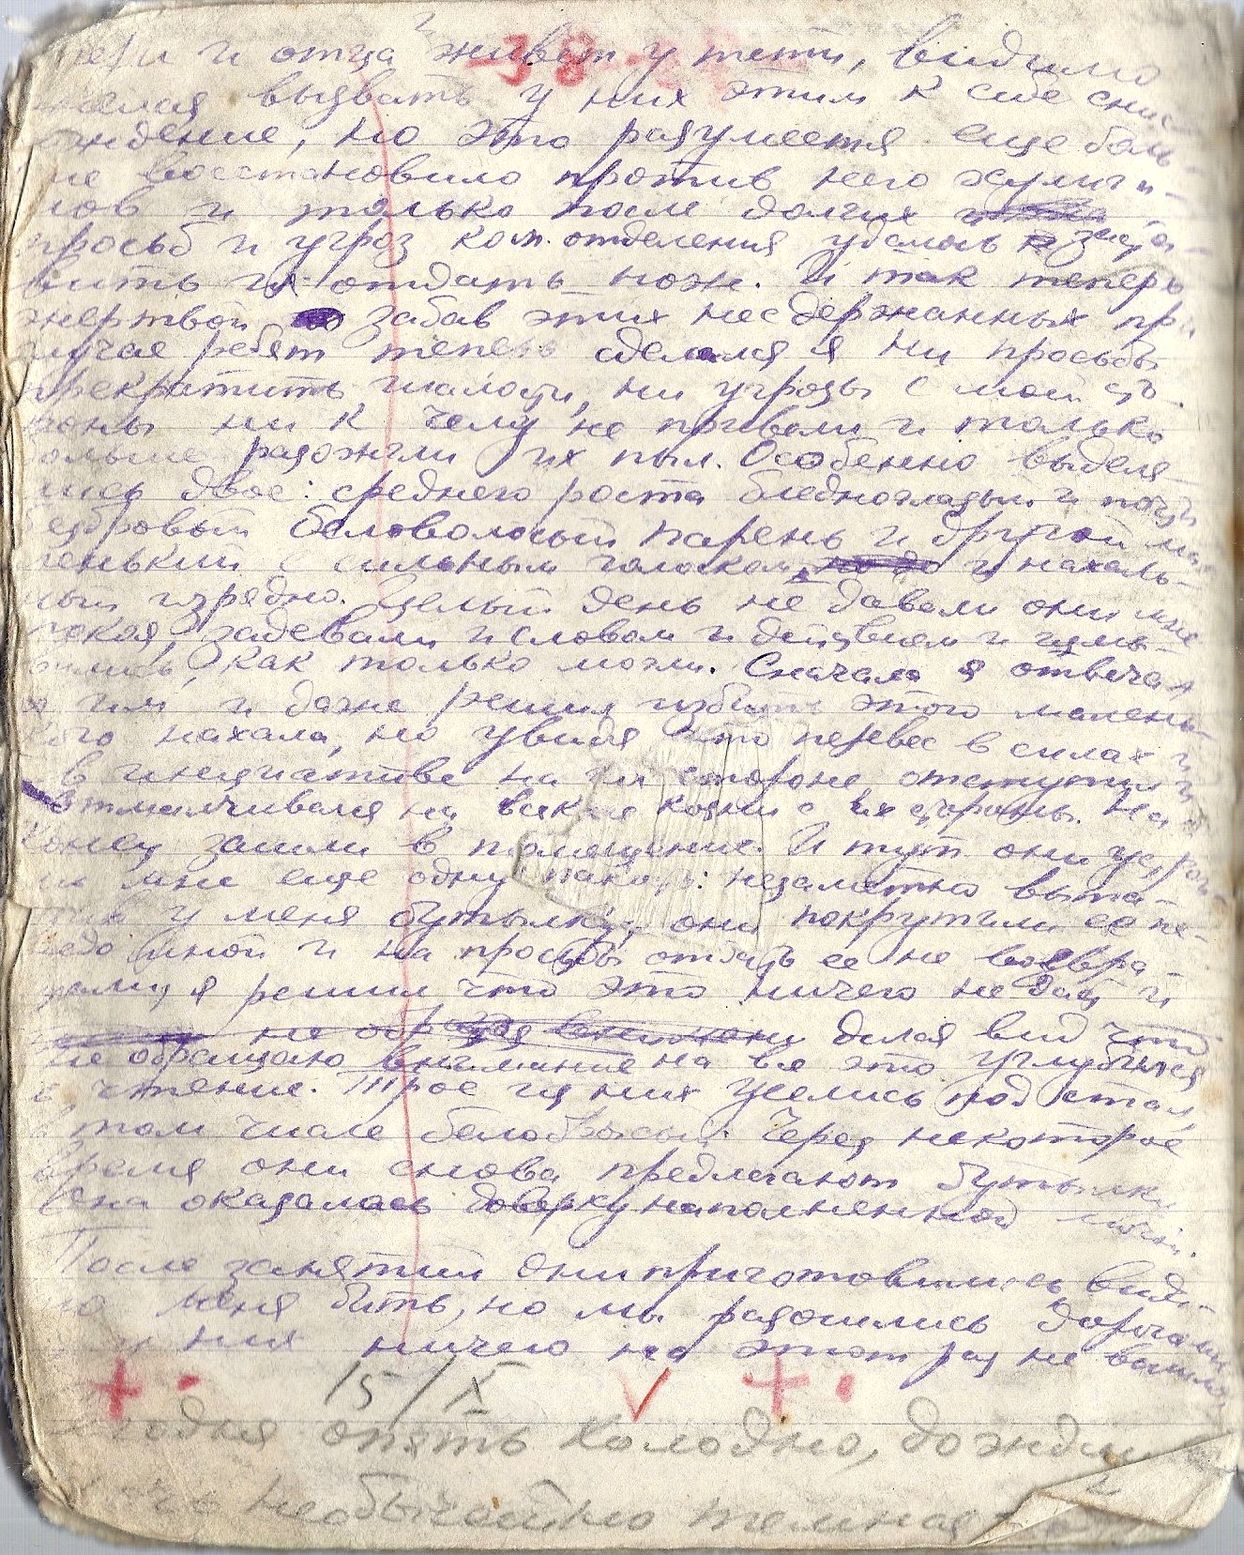 и отца живет у тети, видимо
желая вызвать у них этим к себе снис-
хождение, но это разумеется еще боль-
ше восстановило против него хулига-
нов и только после долгих
просьб и угроз ком. отделения удалось заста-
вить их отдать нож. И так теперь
жертвой забав этих несдержанных при
случае ребят теперь сделался я. Ни просьбы
прекратить шалости, ни угрозы с моей ст-
роны ни к чему не привели и только
больше разожгли их пыл. Особенно выделя-
лись двое: среднего роста бледноглазый и почти
безбровый беловолосый парень и другой ма-
ленький с сильным голоском и нахаль-
ный изрядно. Целый день не давали они мне
покоя, задевали и словом и действием и глум-
вились, как только могли. Сначала я отвечал
им и даже решил избить этого малень-
кого нахала, но увидя что перевес в силах и
в инициативе на их стороне отступил и
отмалчивался на всякие козни с их стороны. На-
конец зашли в помещение. И тут они устрои-
ли мне еще одну пакость: незаметно выта-
щив у меня бутылку, они покрутили ее пе-
редо мной и на просьбы отдать ее не возвра-
тили, я решил, что это ничего не даст и
не обращая внимания делая вид что
не обращаю внимание на все это углубился
в чтение. Трое из них уселись под стол,
в том числе белобрысый. Через некоторое
время они снова предлагают бутылку
она оказалась доверху наполненной
После занятий они приготовились види-
мо меня бить, но мы разошлись дорогами
и у них ничего на этот раз не вышло
15/X
Сегодня опять холодно, дождли
Ночь необычайно темная